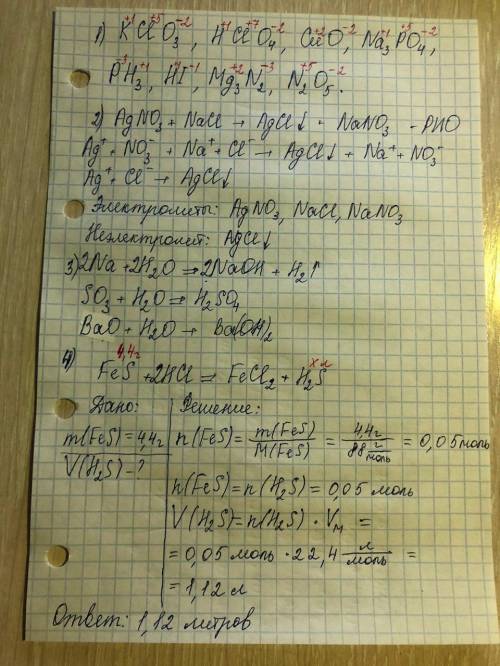 1) K⁺¹Cl⁺⁵O₃⁻², H⁺¹Cl⁺⁷O₄⁻², Cu⁺²O⁻², Na₃⁺¹P⁺⁵O₄⁻²,
P⁻³H₃⁺¹, H⁺¹I⁻¹, Mg₃⁺²N₂⁻³, N₂⁺⁵O₅⁻².
2) AgNO₃ + NaCl → AgCl↓ + NaNO₃ - РИО
Ag⁺ + NO₃⁻ + Na⁺ + Cl⁻ → AgCl↓ + Na⁺ + NO₃⁻
Ag⁺ + Cl⁻ → AgCl↓
Электролиты: AgNO₃, NaCl, NaNO₃
Неэлектролит: AgCl↓
3) 2Na + 2H₂O → 2NaOH + H₂↑
SO₃ + H₂O = H₂SO₄
BaO + H₂O → Ba(OH)₂
4,4г x л
4) FeS + 2HCl = FeCl₂ + H₂S
Дано: Решение:
m(FeS) = 4,4г n(FeS) = m(FeS)/M(FeS) = 4,4г/88 г/моль = 0,05 моль
V(H₂S) - ?
n(FeS) = n(H₂S) = 0,05 моль
V(H₂S) = n(H₂S) · Vₘ =
= 0,05 моль · 22,4 л/моль =
= 1,12 л
Ответ: 1,12 литров